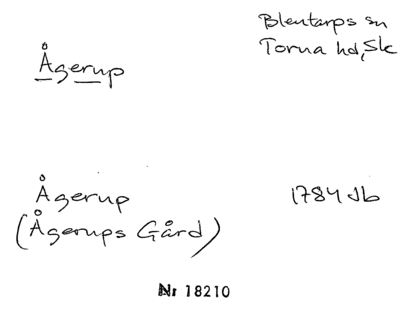 Blentarps sn
Ågerup
Torna hd, Sk
Ågerup
1784 Jb
(Ågerups Gård)
Nr 18210